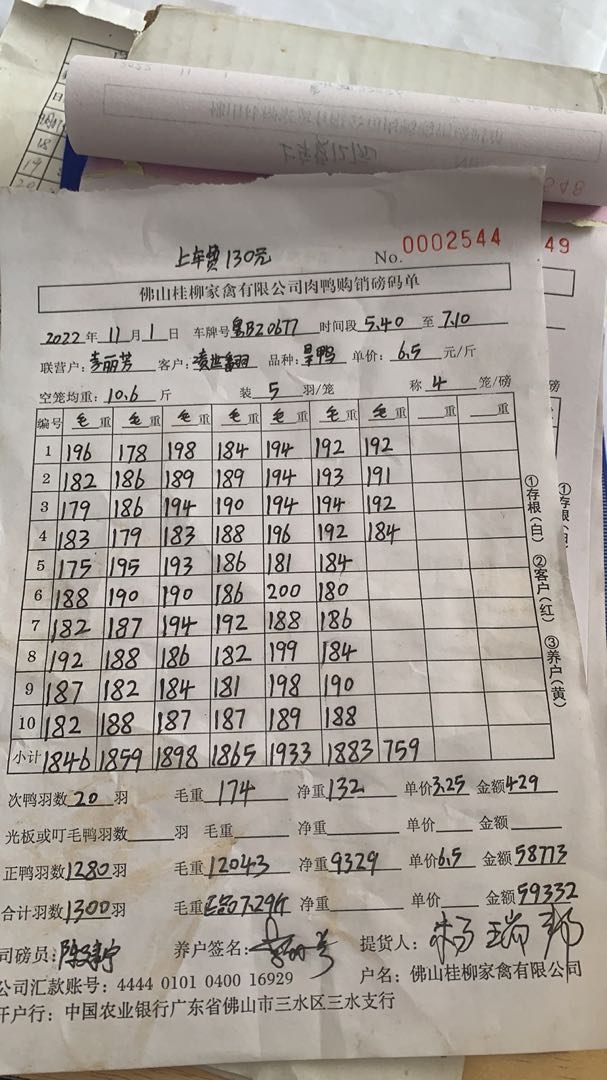 上车费130元
No. 0002544
49
佛山桂柳家禽有限公司肉鸭购销磅码单
2022年11月1日 车牌号粤B20677 时间段5.40至7.10
联营户:李丽芳 客户: 品种:旱鸭 单价:6.5元/斤
空笼均重:10.6斤 装5羽/笼 称4笼/磅
编号 毛重 毛重 毛重 毛重 毛重 毛重 毛重 重 重
1 196 178 198 184 194 192 192
2 182 186 189 189 194 193 191
3 179 186 194 190 194 194 192
4 183 179 183 188 196 192 184
5 175 195 193 186 181 184
6 188 190 190 186 200 180
7 182 187 194 192 188 186
8 192 188 186 182 199 184
9 187 182 184 181 198 190
10 182 188 187 187 189 188
小计 1846 1859 1898 1865 1933 1883 759
①存根(白) ②客户(红) ③养户(黄)
次鸭羽数20羽 毛重174 净重132 单价3.25 金额429
光板或叮毛鸭羽数 羽 毛重 净重 单价 金额
正鸭羽数1280羽 毛重12043 净重9329 单价6.5 金额58773
合计羽数1300羽 毛重正品7.29斤 净重 单价 金额59332
司磅员: 养户签名: 提货人:杨瑞邦
公司汇款账号: 4444 0101 0400 16929 户名: 佛山桂柳家禽有限公司
开户行: 中国农业银行广东省佛山市三水区三水支行